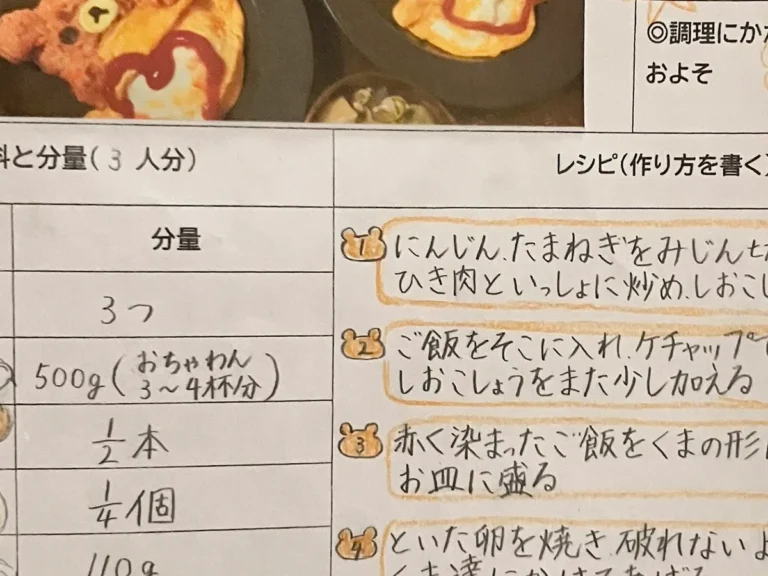 ◎調理にか
およそ
料と分量(3人分)
レシピ(作り方を書く)
分量
3つ
500g(おちゃわん
3〜4杯分)
1/2本
1/4個
110g
1 にんじん、たまねぎをみじん切
ひき肉といっしょに炒め、しおこし
2 ご飯をそこに入れ、ケチャップで
しおこしょうをまた少し加える
3 赤く染まったご飯をくまの形に
お皿に盛る
4 といた卵を焼き、破れないよ